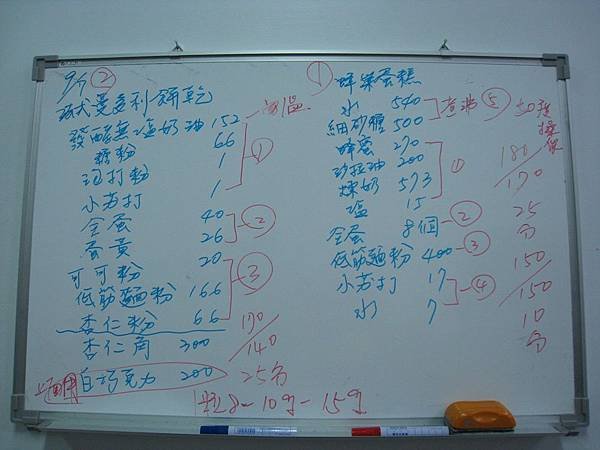 9/7 ②
義式曼多利餅乾
發酵無塩奶油 152
糖粉 66
泡打粉 1
小苏打 1
①
全蛋 40
蛋黃 26
②
可可粉 20
低筋麵粉 166
杏仁粉 66
③
杏仁角 300
190/140
白巧克力 200
25分
1粒8-10g-15g
① 蜂巢蛋糕
水 540
細砂糖 500
煮沸⑤
蜂蜜 270
沙拉油 200
煉奶 573
塩 15
①
全蛋 8個 ②
低筋麵粉 400 ③
小苏打 17
水 7
④
180/170
25分
150/150
10分